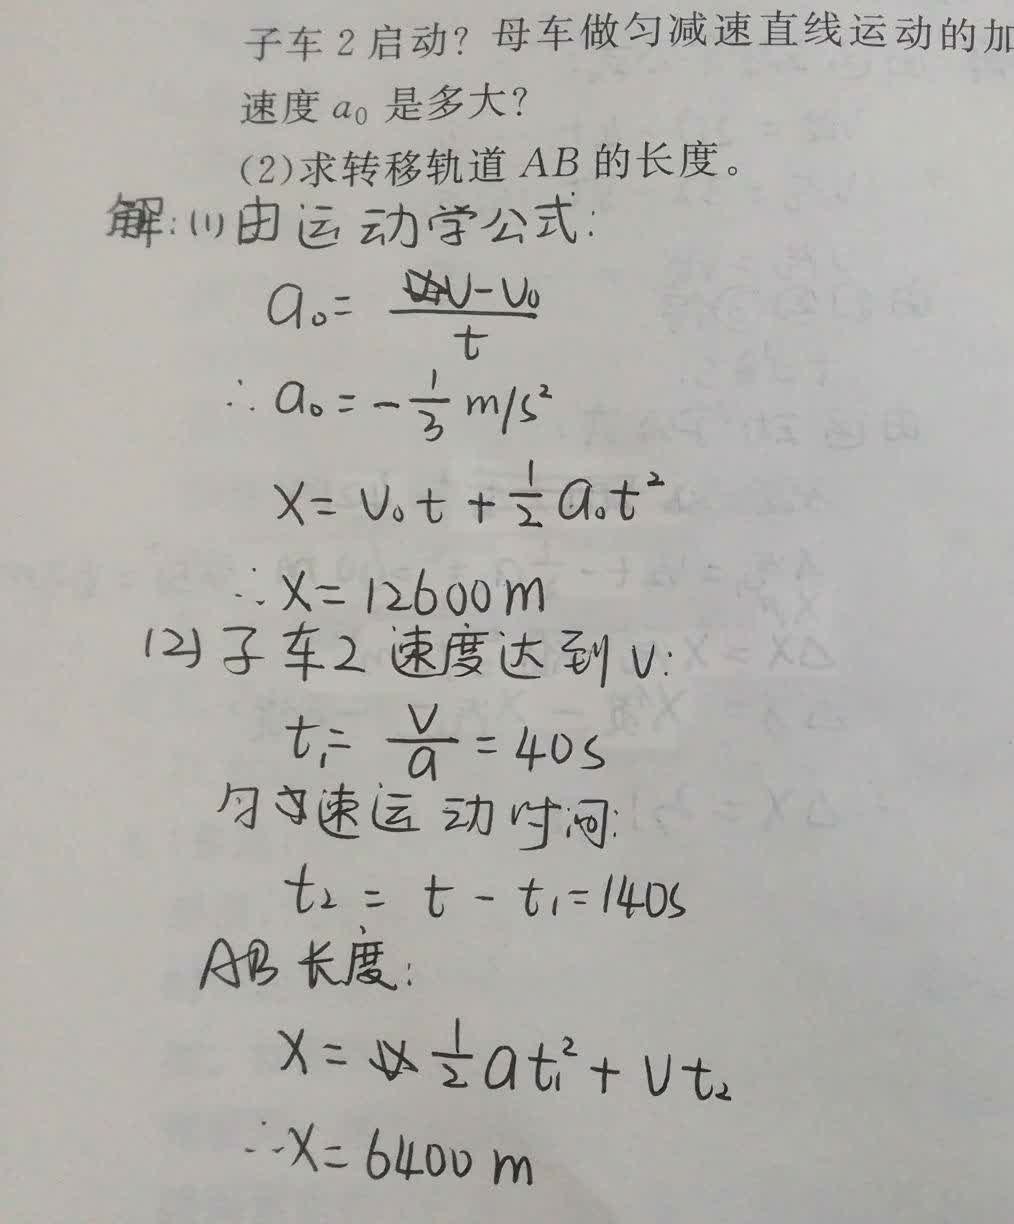 子车2启动？母车做匀减速直线运动的加
速度a₀是多大？
(2)求转移轨道AB的长度。
解:(1)由运动学公式:
a₀= (v-v₀)/t
∴a₀=-1/3 m/s²
x=v₀t+1/2 a₀t²
∴x=12600m
(2)子车2速度达到v:
t₁= v/a =40s
匀速运动时间:
t₂ = t - t₁=140s
AB长度:
x= 1/2 at₁²+vt₂
∴x=6400m